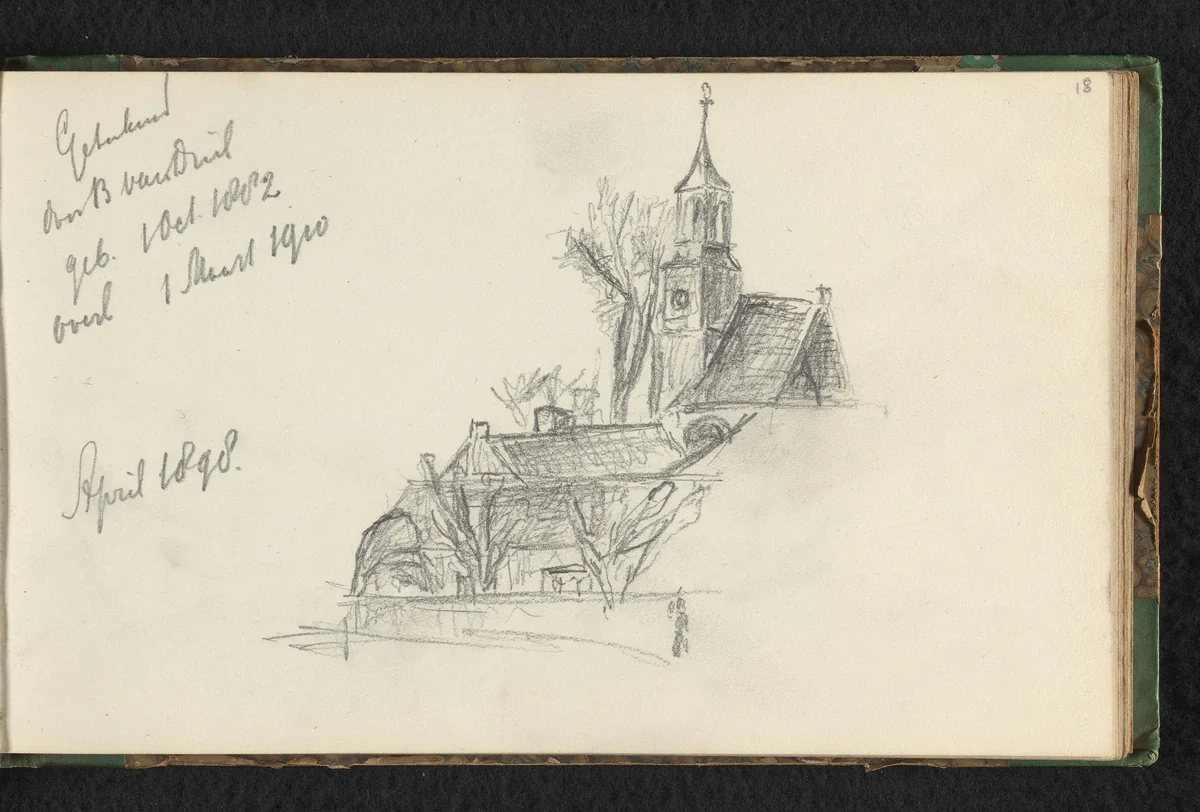 Getekend
door B van Driel
geb. 1 Oct. 1882
overl 1 Maart 1910
April 1898.
18